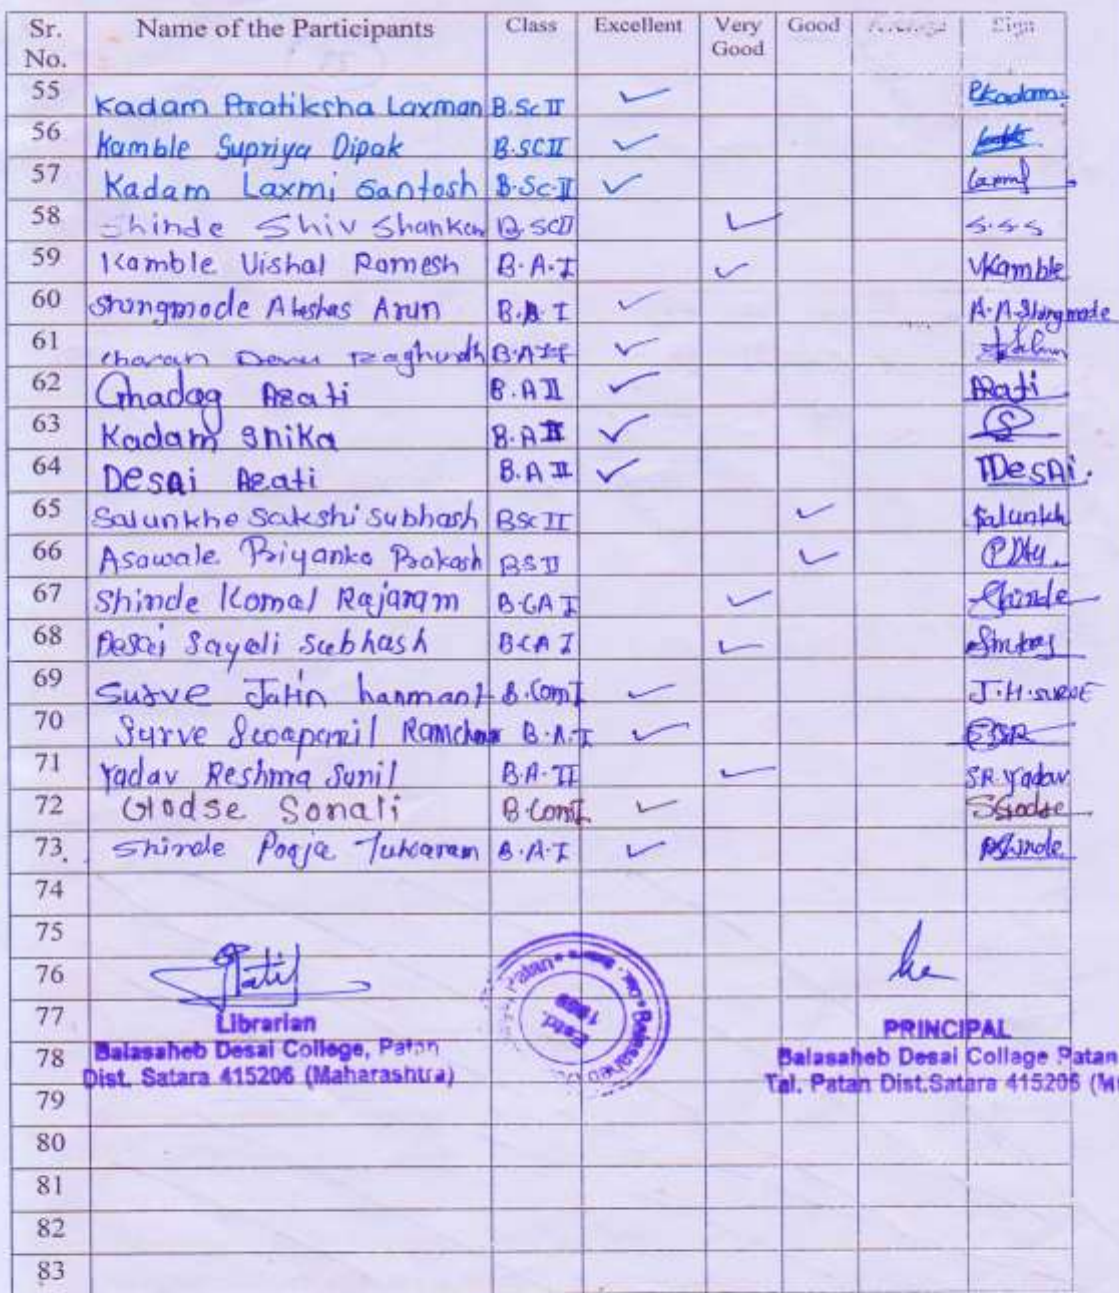 Sr. No. Name of the Participants Class Excellent Very Good Good Average Sign
55 Kadam Pratiksha Laxman B.Sc II ✓ P.Kadam
56 Kamble Supriya Dipak B.SC II ✓
57 Kadam Laxmi Santosh B.Sc-II ✓ Laxmi
58 Shinde Shiv Shankar B.SCII ✓ S.S.S
59 Kamble Vishal Ramesh B.A.I ✓ VKamble
60 Shingmode Arun B.A I ✓ A.A.Shingmode
61 charan B.A II ✓
62 Ghadag Arati B.A II ✓ Arati
63 Kadam B.A II ✓
64 Desai Arati B.A II ✓ Desai.
65 Salunkhe Sakshi Subhash BSc II ✓ Salunkh
66 Asawale Priyanka Prakash BS II ✓
67 Shinde Komal Rajaram B.CA I ✓ Shinde
68 Desai Sayali Subhash BCA I ✓
69 Surve Jatin hanmant B.Com I ✓ J.H.SURVE
70 Surve Swapanil B.A.I ✓
71 Yadav Reshma Sunil B.A-II ✓ SR.Yadav
72 Godse Sonali B.Com I ✓ SGodse
73. Shinde Pooja Tukaram B.A-I ✓ PShinde
74
75
76 Patil
77 Librarian PRINCIPAL
78 Balasaheb Desai College, Patan Balasaheb Desai College Patan
Dist. Satara 415206 (Maharashtra) Tal. Patan Dist.Satara 415206
79
80
81
82
83
Estd. 1968